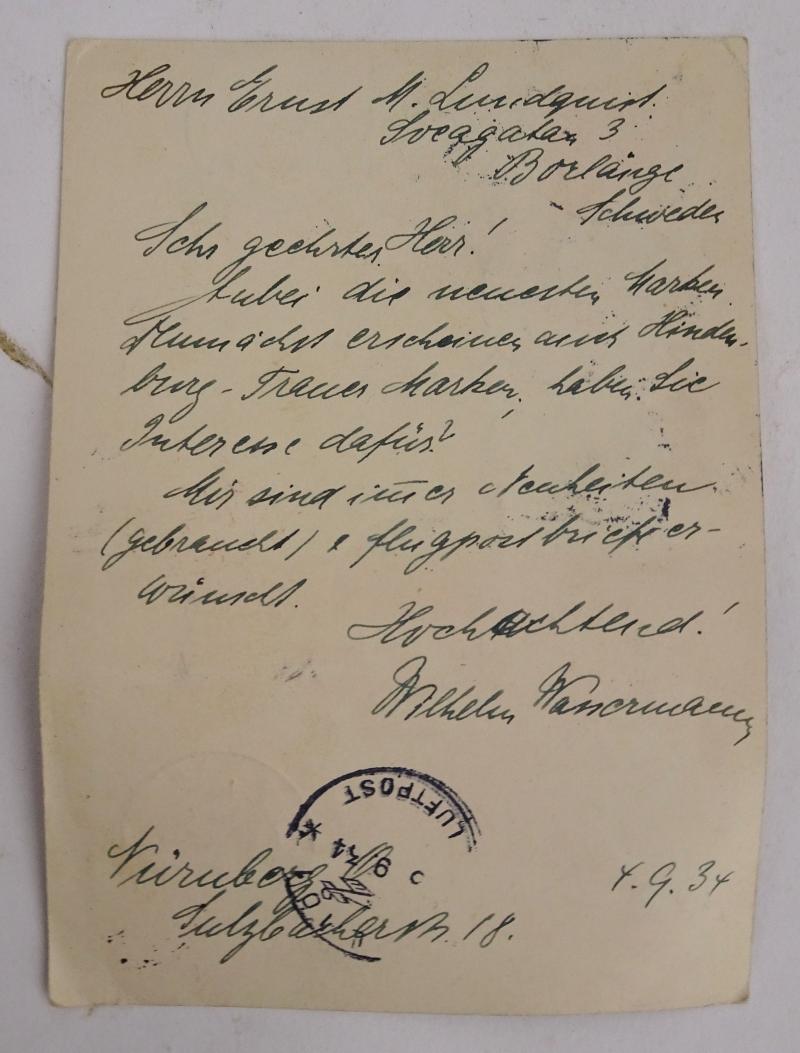 Herrn Ernst M. Lundquist.
Sveagatan 3
Borlänge
Schweden
Sehr geehrter Herr!
Anbei die neuesten Marken.
Demnächst erscheinen auch Hinden-
burg-Trauer Marken, haben Sie
Interesse dafür?
Mir sind immer Neuheiten
(gebraucht) & Flugpostbriefe er-
wünscht.
Hochachtend!
Wilhelm Wassermann
LUFTPOST
9 34
Nürnberg O
Sulzbacherstr. 18.
4.9.34